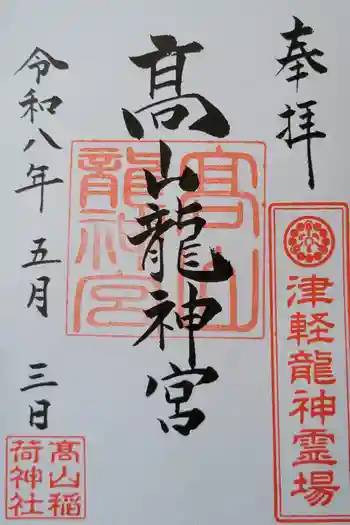 奉拝
津軽龍神霊場
髙山龍神宮
髙山
龍神宮
令和八年 五月 三日
髙山稲
荷神社